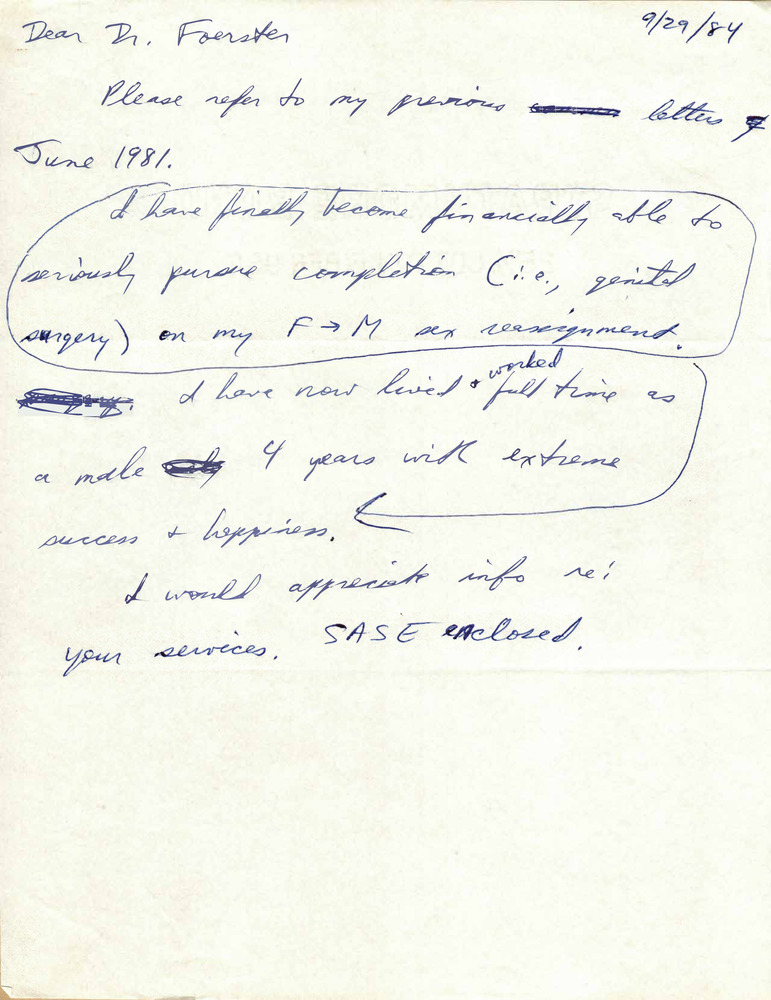 9/29/84
Dear Dr. Foerster
Please refer to my previous letters of
June 1981.
I have finally become financially able to
seriously pursue completion (i.e., genital
surgery) on my F→M sex reassignment.
I have now lived + worked full time as
a male 4 years with extreme
success + happiness.
I would appreciate info re:
your services. SASE enclosed.